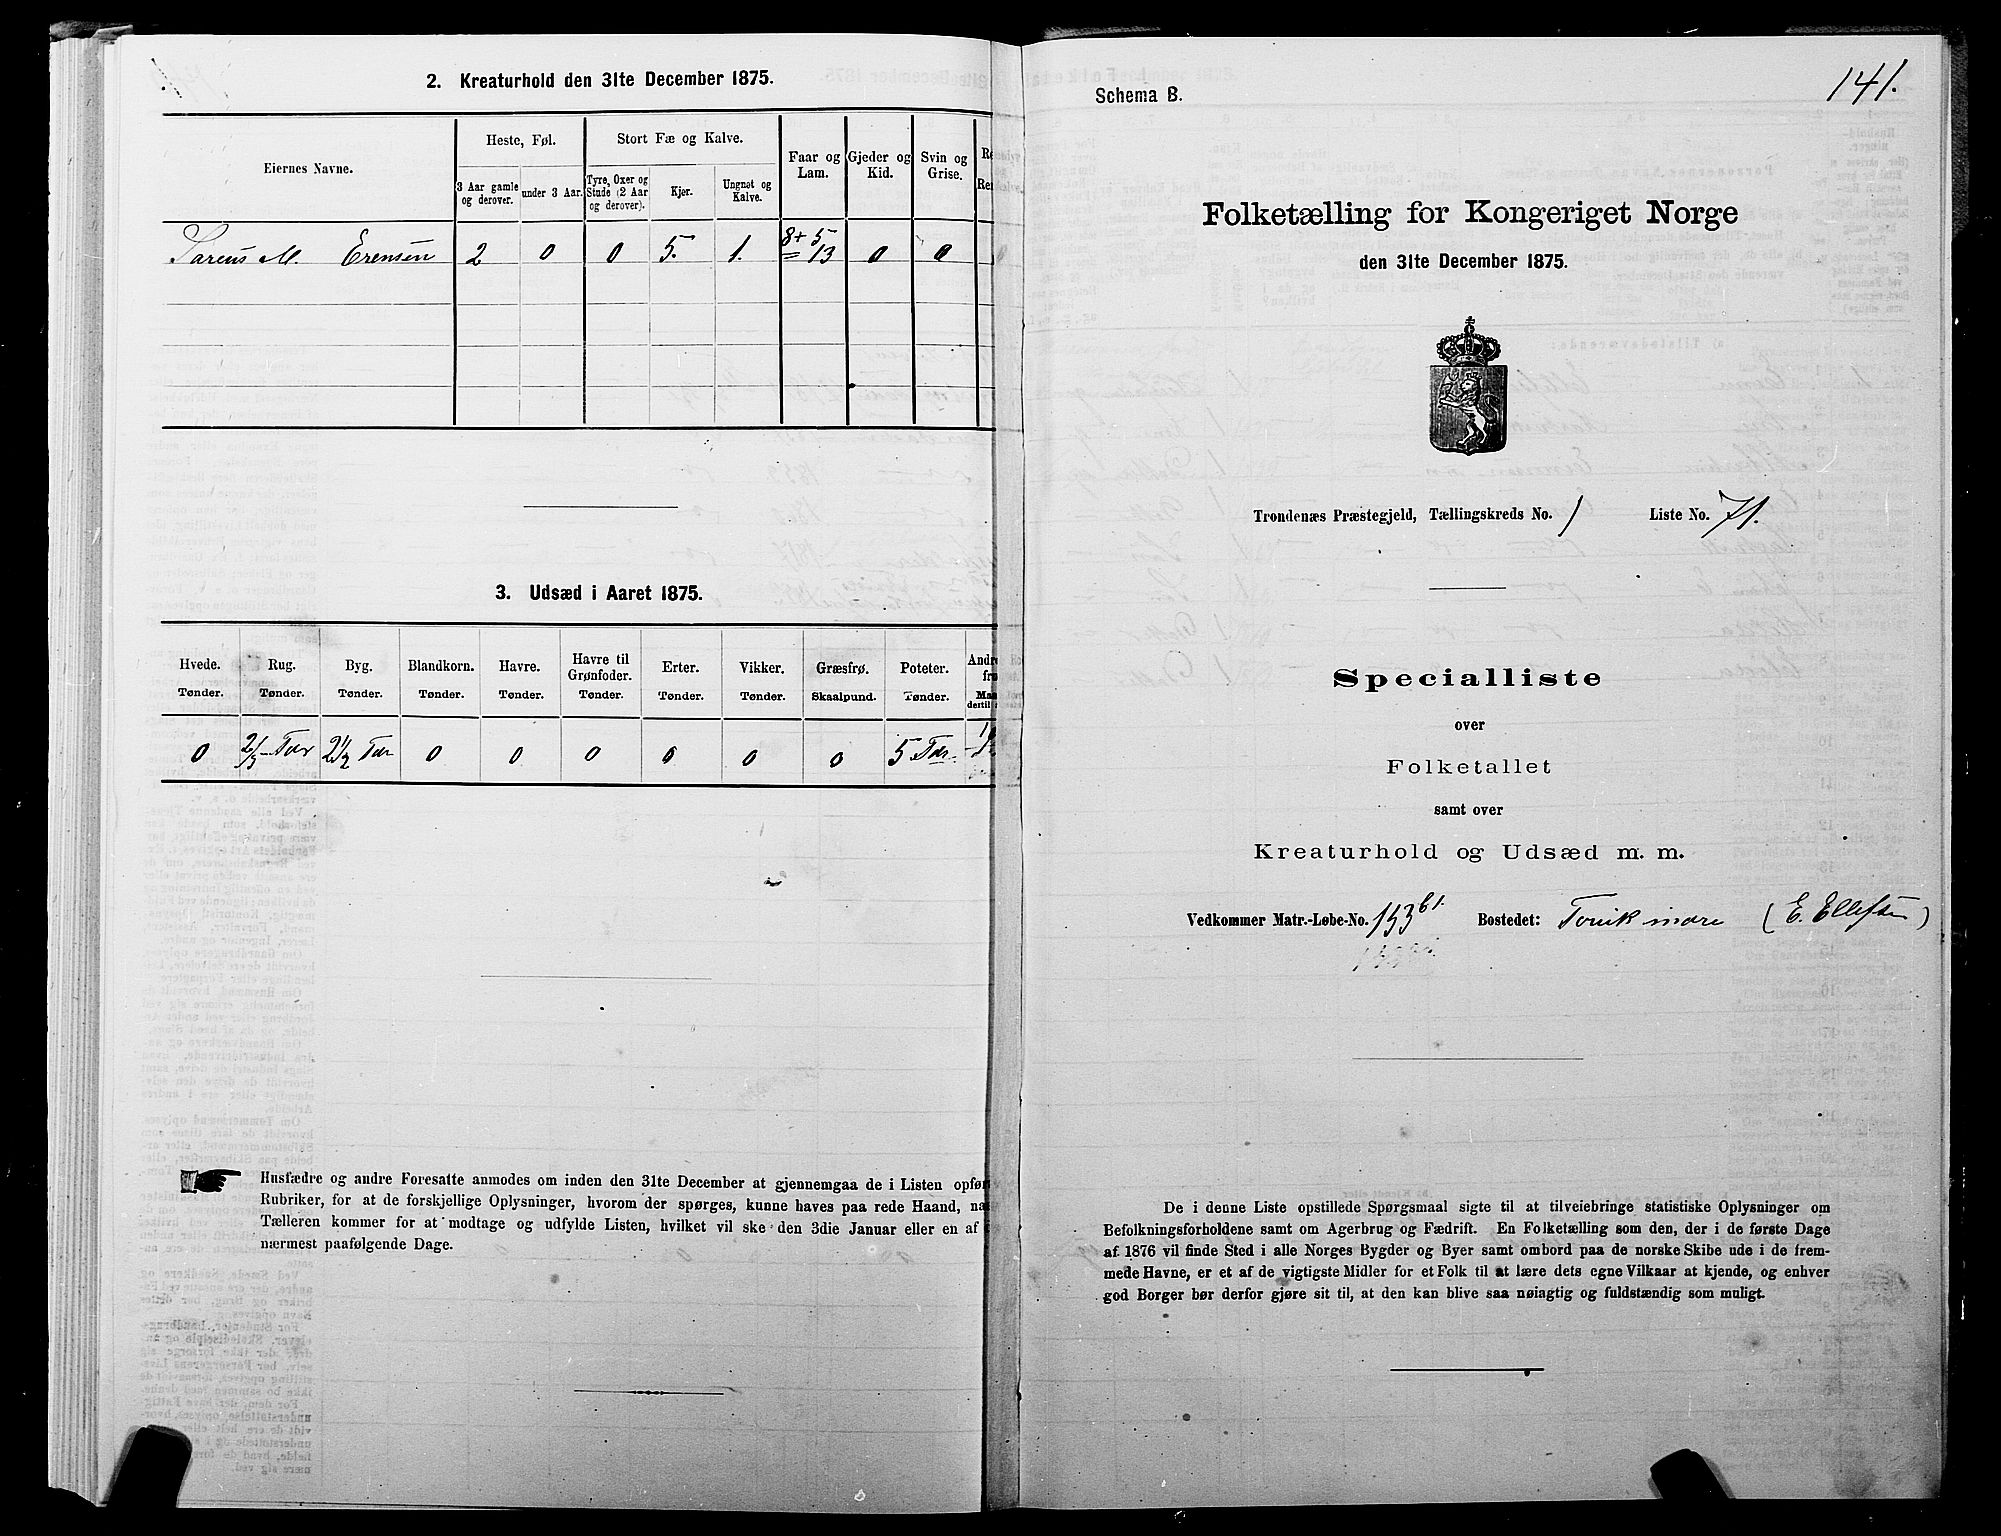 2. Kreaturhold den 31te December 1875.
Eiernes Navne.
Heste, Føl.
Stort Fæ og Kalve.
Faar og Lam.
Gjeder og Kid.
Svin og Grise.
3 Aar gamle og derover.
under 3 Aar.
Tyre, Oxer og Stude (2 Aar og derover).
Kjør.
Ungnøt og Kalve.
M. Erensen 2 0 0 5. 1. 8+5 = 13 0 0
3. Udsæd i Aaret 1875.
Hvede. Rug. Byg. Blandkorn. Havre. Havre til Grønfoder. Erter. Vikker. Græsfrø. Poteter.
Tønder. Tønder. Tønder. Tønder. Tønder. Tønder. Tønder. Tønder. Skaalpund. Tønder.
0 2/3 Tdr 2 1/2 Tdr 0 0 0 0 0 0 5 Tdr.
Husfædre og andre Foresatte anmodes om inden den 31te December at gjennemgaa de i Listen opfør
Rubriker, for at de forskjellige Oplysninger, hvorom der spørges, kunne haves paa rede Haand, na
Tælleren kommer for at modtage og udfylde Listen, hvilket vil ske den 3die Januar eller en af
nærmest paafølgende Dage.
141.
Schema B.
Folketælling for Kongeriget Norge
den 31te December 1875.
Trondenæs Præstegjeld, Tællingskreds No. 1 Liste No. 71.
Specialliste
over
Folketallet
samt over
Kreaturhold og Udsæd m. m.
Vedkommer Matr.-Løbe-No. 153 b1. Bostedet: Torvik indre (E. Ellefsen)
De i denne Liste opstillede Spørgsmaal sigte til at tilveiebringe statistiske Oplysninger om
Befolkningsforholdene samt om Agerbrug og Fædrift. En Folketælling som den, der i de første Dage
af 1876 vil finde Sted i alle Norges Bygder og Byer samt ombord paa de norske Skibe ude i de frem-
mede Havne, er et af de vigtigste Midler for et Folk til at lære dets egne Vilkaar at kjende, og enhver
god Borger bør derfor gjøre sit til, at den kan blive saa nøiagtig og fuldstændig som muligt.